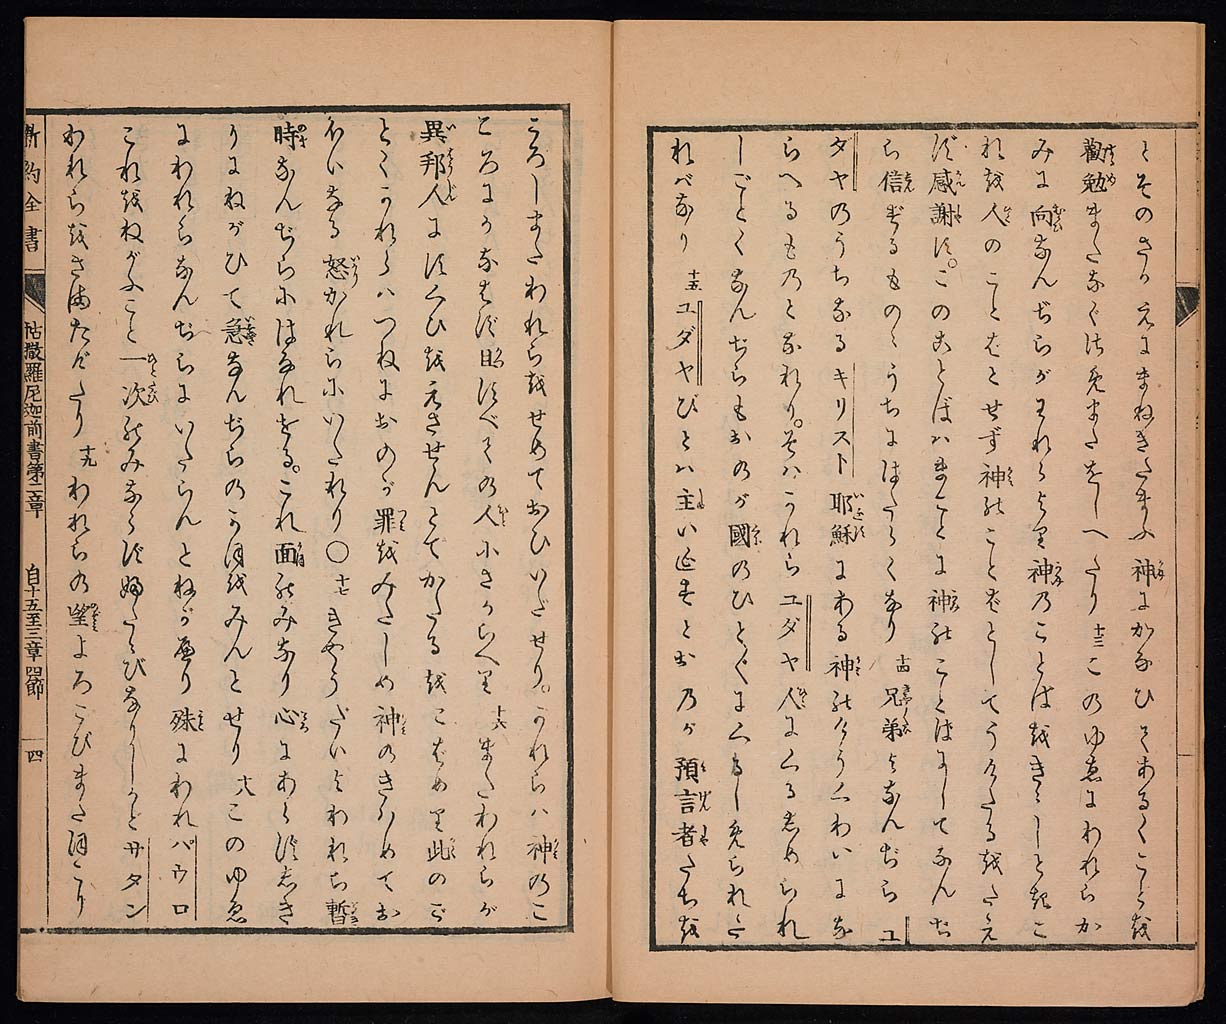 とそのさかえにまねきたまふ神にかなひてあるくことを
勸勉またなぐさめまたをしへたり 十三 このゆゑにわれらか
みに向なんぢらがわれらより神のことばをきゝしときこ
れを人のことばとせず神のことばとしてうけたるをたえ
ず感謝す。このことばはまことに神のことばにしてなんぢ
ら信ずるものゝうちにはたらくなり 十四 兄弟よなんぢらユ
ダヤのうちなるキリスト耶穌にある神のけうくわいにな
らへるものとなれり。そはかれらユダヤ人にくるしめられ
しごとくなんぢらもおのが國のひと〲にくるしめられた
ればなり 十五 ユダヤびとは主いゑすとおのが預言者たちを
ころしまたわれらをせめておひいだせり。かれらは神のこ
ころにかなはず且すべての人にさからへり 十六 またわれらが
異邦人にすくひをえさせんとてかたるをこばめり此のご
とくかれらはつねにおのが罪をみたしめ神のきはめてお
ほいなる怒かれらにいたれり〇 十七 きやうだいよわれら暫
時なんぢらにはなれをる。これ面のみなり心にあらずしき
りにねがひて急なんぢらのかほをみんとせり 十八 このゆゑ
にわれらなんぢらにいたらんとねがへり殊にわれパウロ
これをねがふこと一次のみならずふたゝびなりしかどサタン
われらをさまたげたり 十九 われらの望よろこびまたほこり
新約全書 帖撒羅尼迦前書第二章 自十五至三章四節 四